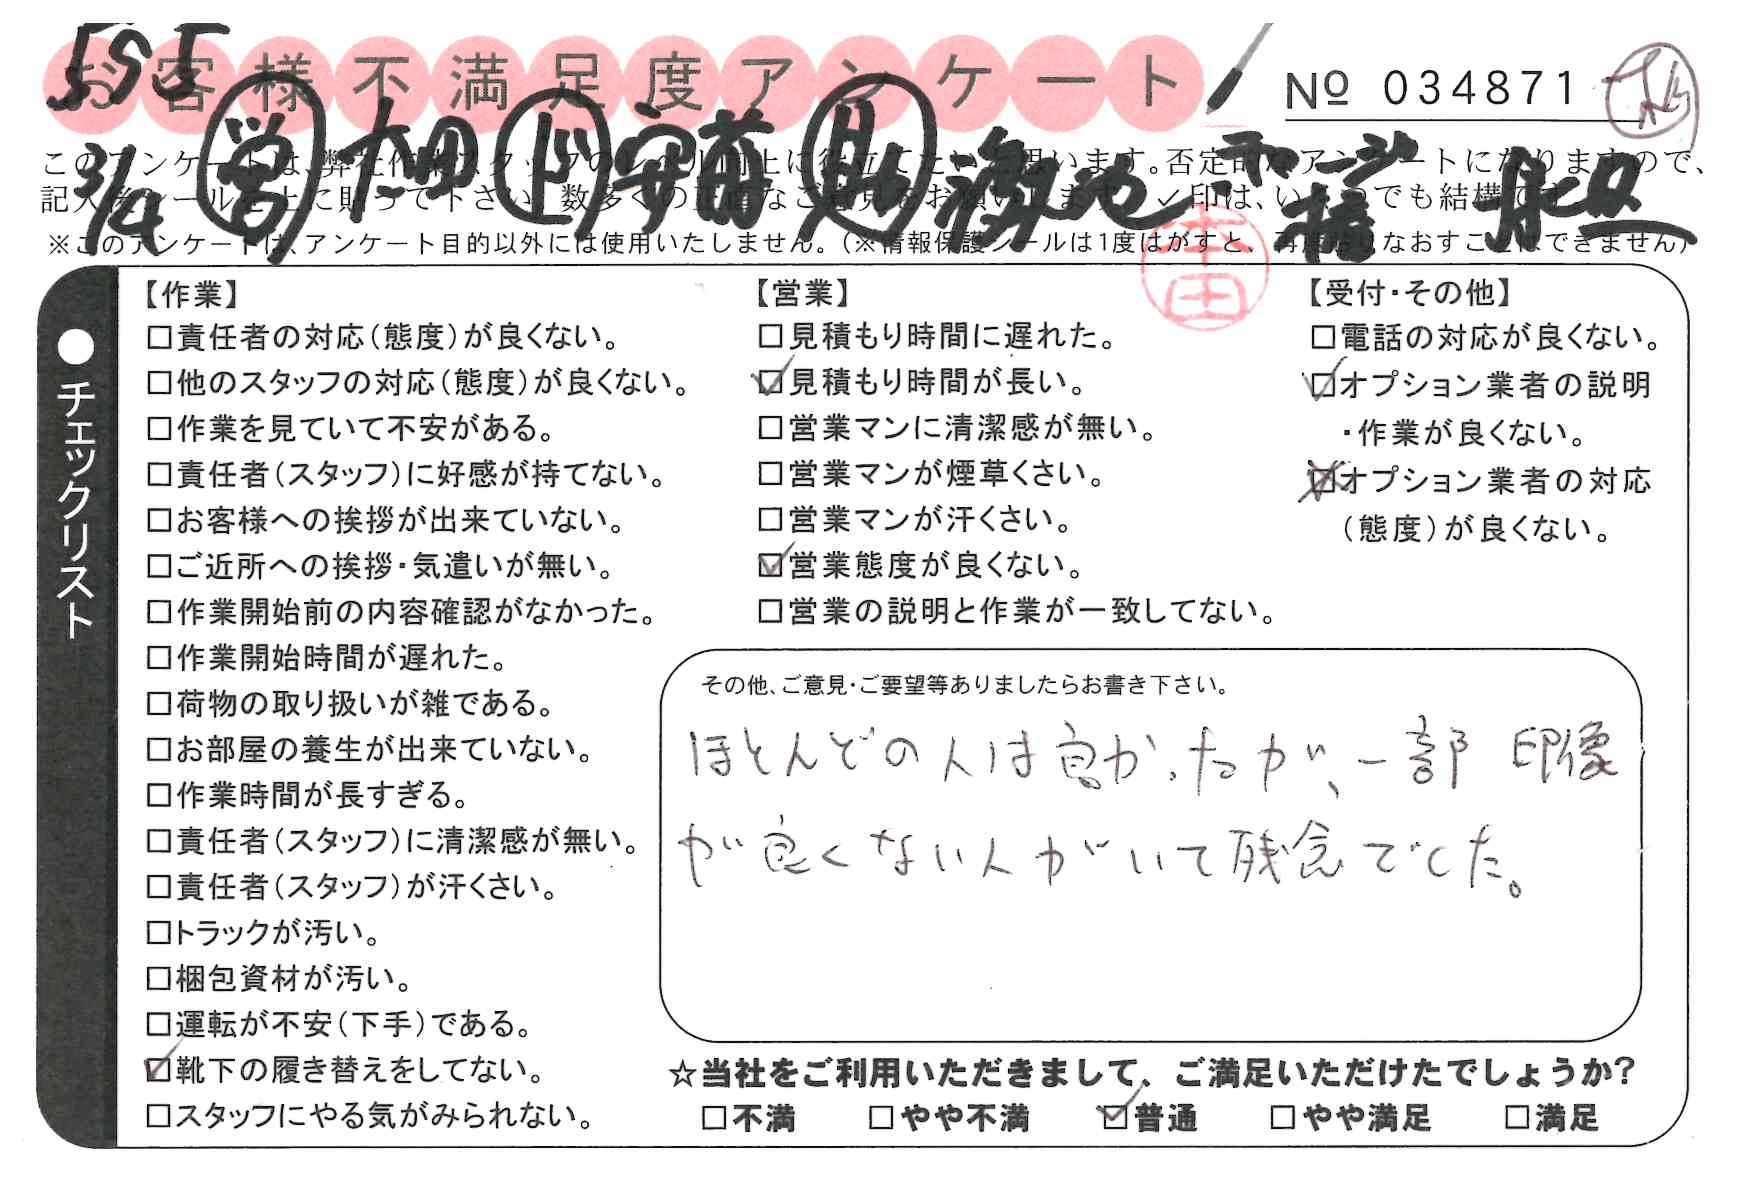 お客様不満足度アンケート
№ 034871
3/4 営 大田 ド 守前 助
本田
※このアンケートは、アンケート目的以外には使用いたしません。(※情報保護シールは1度はがすと、再度貼りなおすことはできません)
●チェックリスト
【作業】
□責任者の対応(態度)が良くない。
□他のスタッフの対応(態度)が良くない。
□作業を見ていて不安がある。
□責任者(スタッフ)に好感が持てない。
□お客様への挨拶が出来ていない。
□ご近所への挨拶・気遣いが無い。
□作業開始前の内容確認がなかった。
□作業開始時間が遅れた。
□荷物の取り扱いが雑である。
□お部屋の養生が出来ていない。
□作業時間が長すぎる。
□責任者(スタッフ)に清潔感が無い。
□責任者(スタッフ)が汗くさい。
□トラックが汚い。
□梱包資材が汚い。
□運転が不安(下手)である。
☑靴下の履き替えをしてない。
□スタッフにやる気がみられない。
【営業】
□見積もり時間に遅れた。
☑見積もり時間が長い。
□営業マンに清潔感が無い。
□営業マンが煙草くさい。
□営業マンが汗くさい。
☑営業態度が良くない。
□営業の説明と作業が一致してない。
【受付・その他】
□電話の対応が良くない。
☑オプション業者の説明
・作業が良くない。
☑オプション業者の対応
(態度)が良くない。
その他、ご意見・ご要望等ありましたらお書き下さい。
ほとんどの人は良かったが、一部 印像
が良くない人がいて残念でした。
☆当社をご利用いただきまして、ご満足いただけたでしょうか?
□不満 □やや不満 ☑普通 □やや満足 □満足